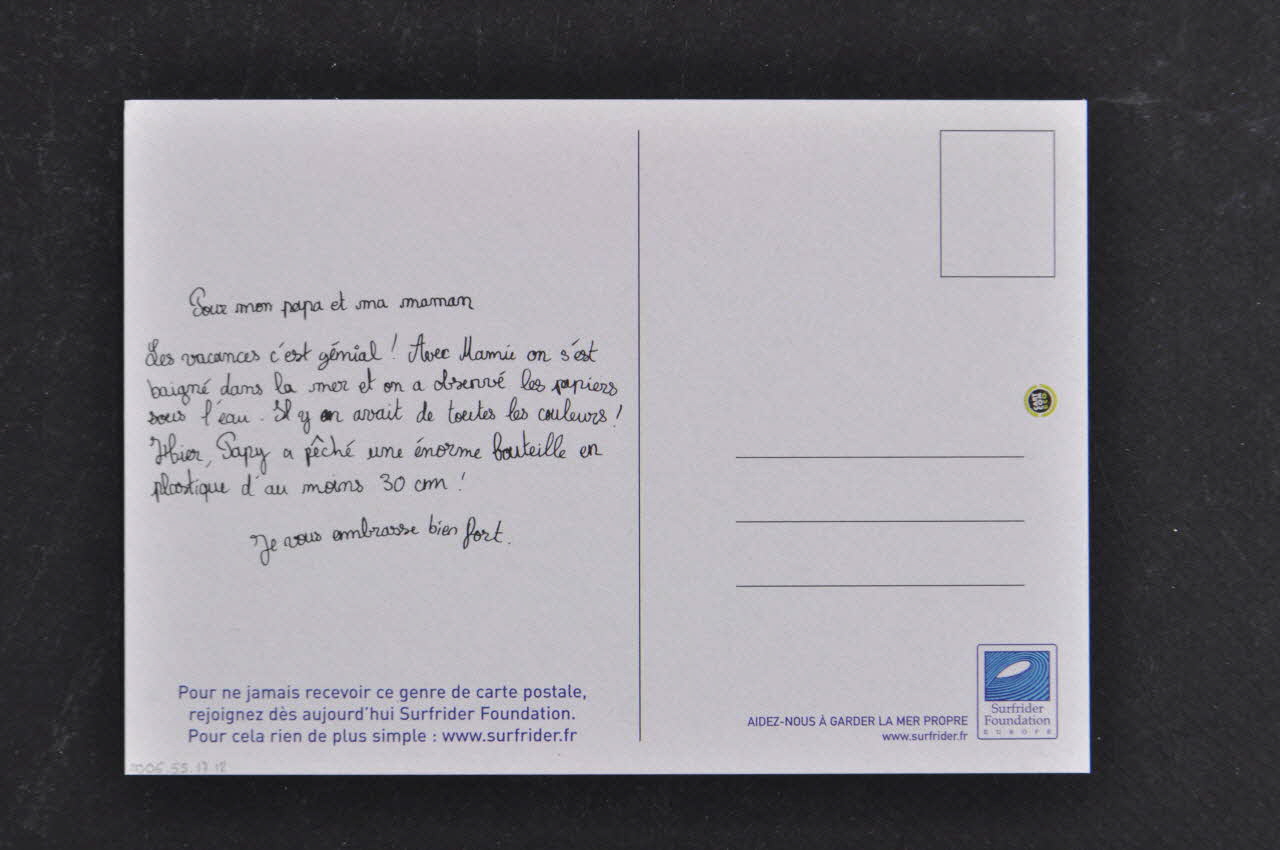 Pour mon papa et ma maman
Les vacances c'est génial ! Avec Mamie on s'est
baigné dans la mer et on a observé les papiers
sous l'eau. Il y en avait de toutes les couleurs !
Hier, Papy a pêché une énorme bouteille en
plastique d'au moins 30 cm !
Je vous embrasse bien fort.
Pour ne jamais recevoir ce genre de carte postale,
rejoignez dès aujourd'hui Surfrider Foundation.
Pour cela rien de plus simple : www.surfrider.fr
AIDEZ-NOUS À GARDER LA MER PROPRE
www.surfrider.fr
Surfrider
Foundation
EUROPE
2006.55.17.12